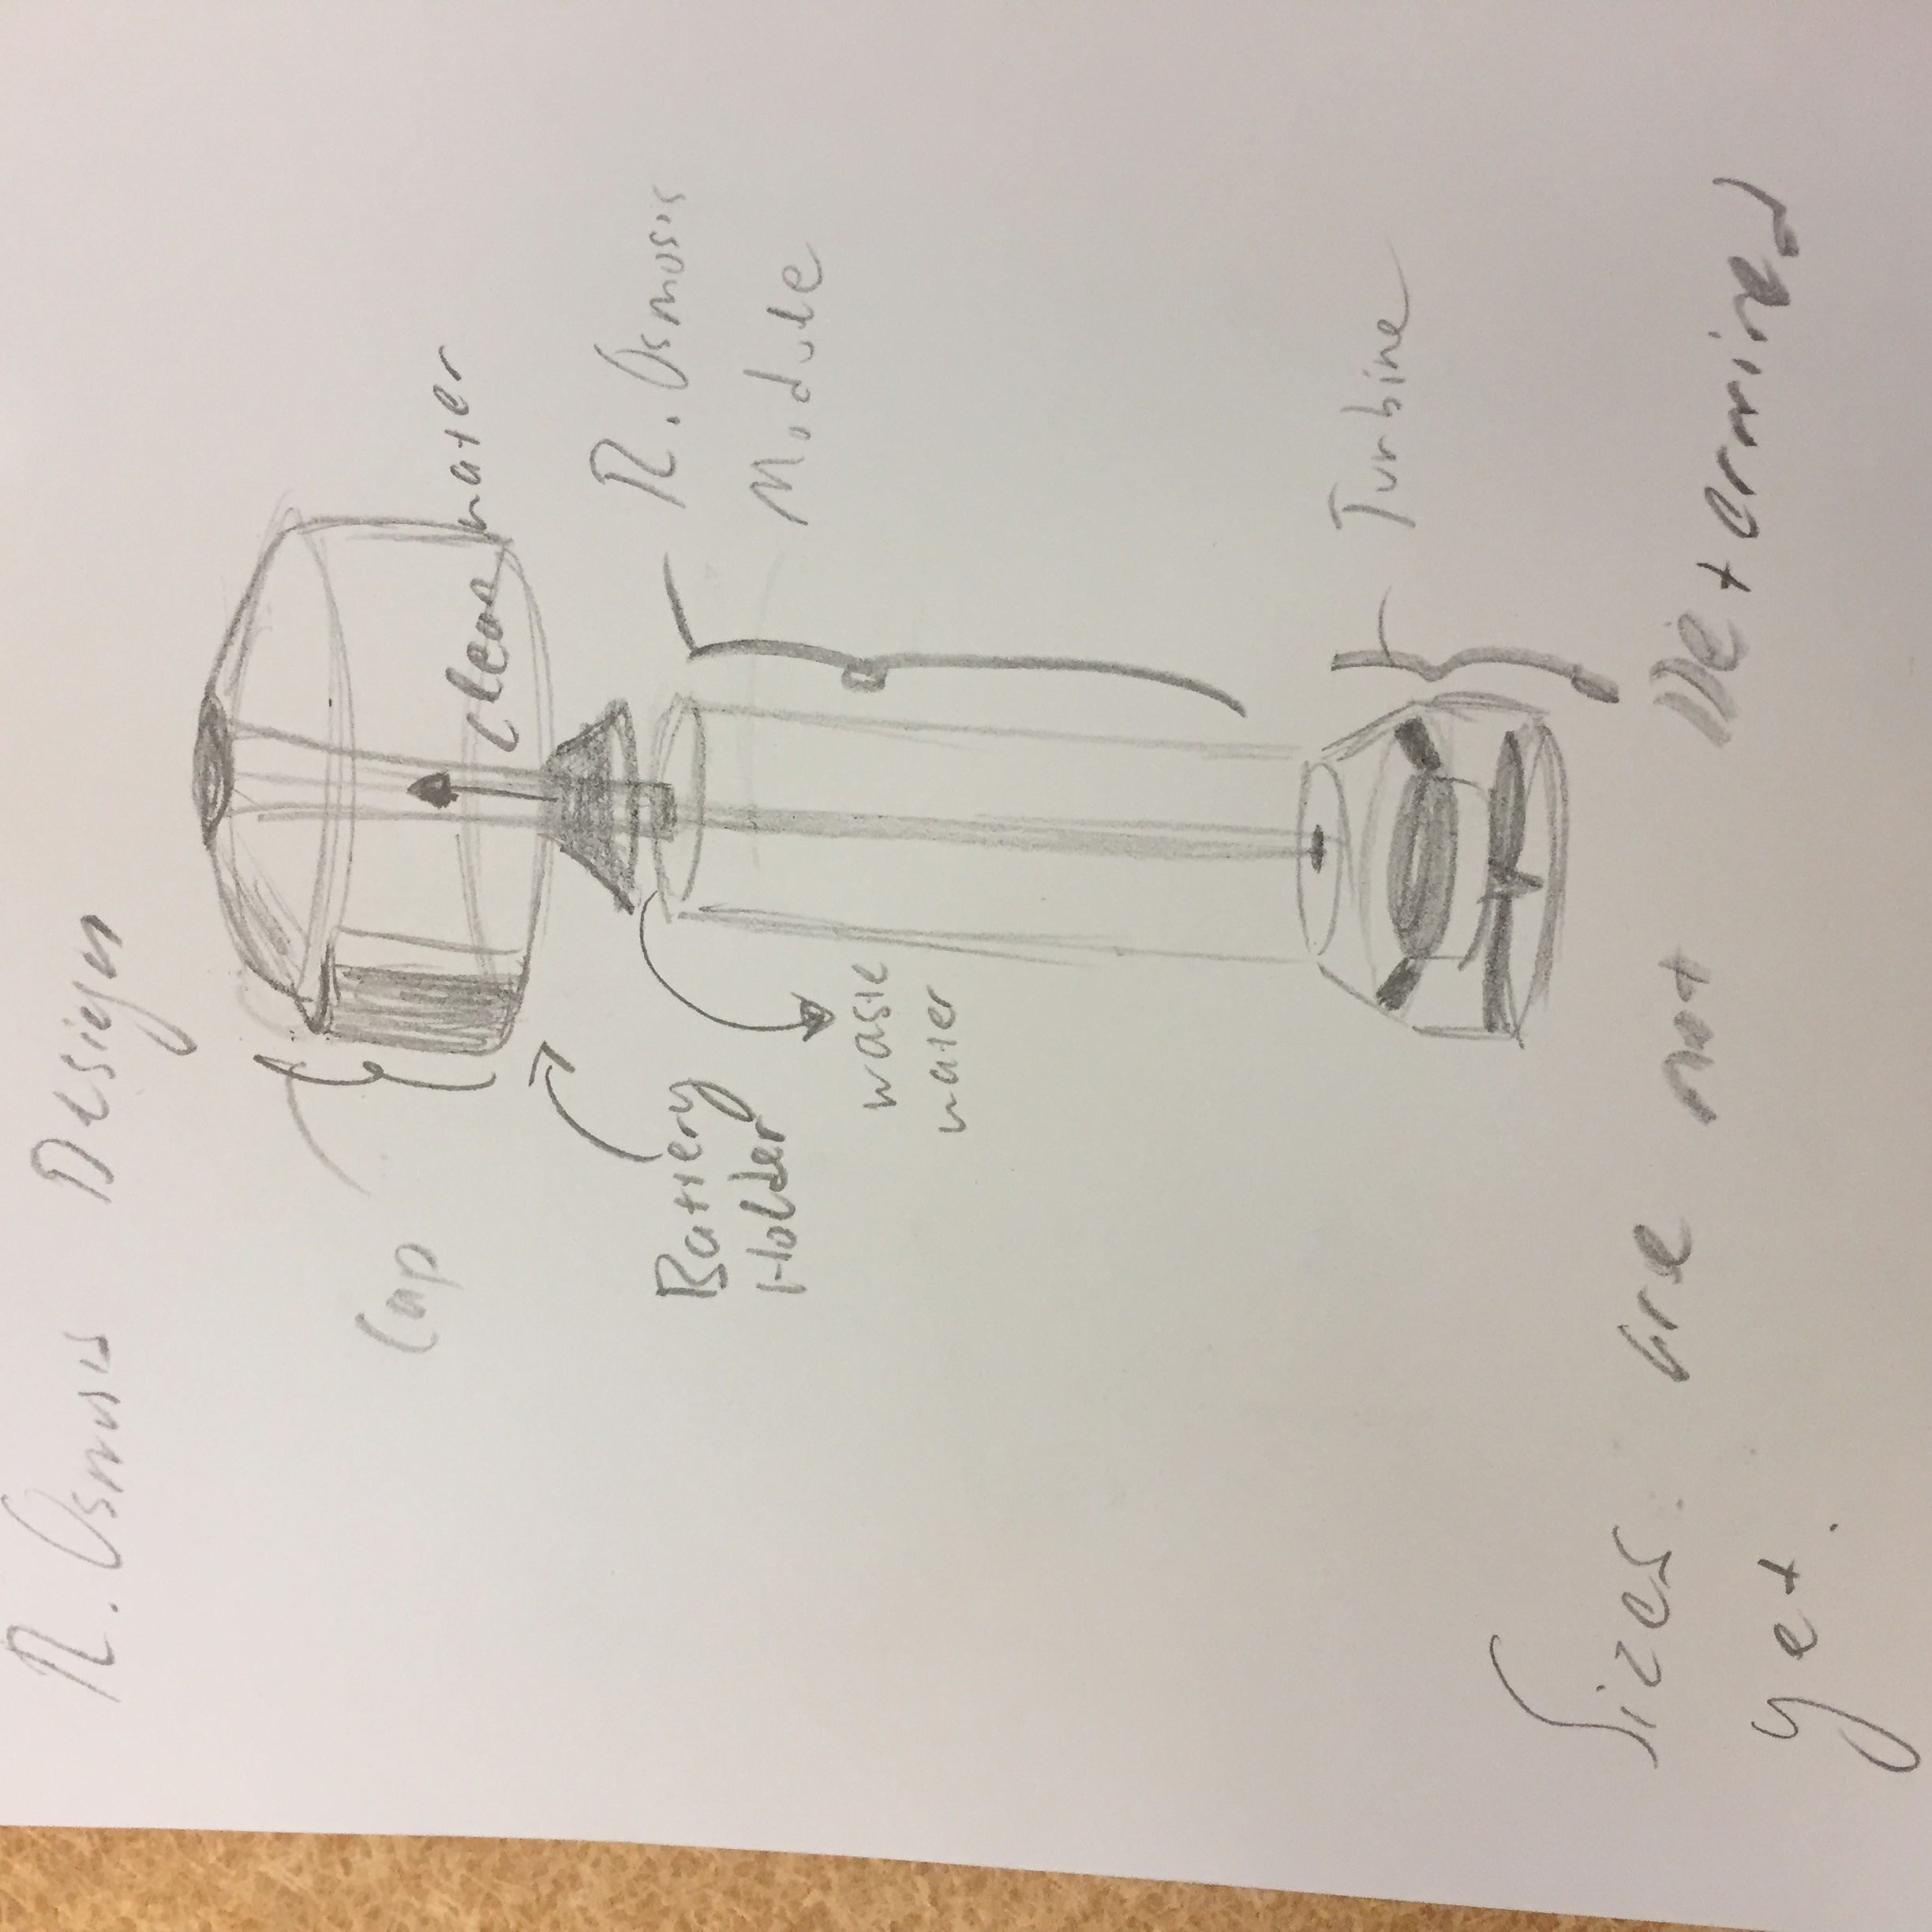 R. Osmosis Design
Cap
clean water
Battery
Holder
R. Osmosis
Module
waste
water
Turbine
Sizes are not Determined
yet.